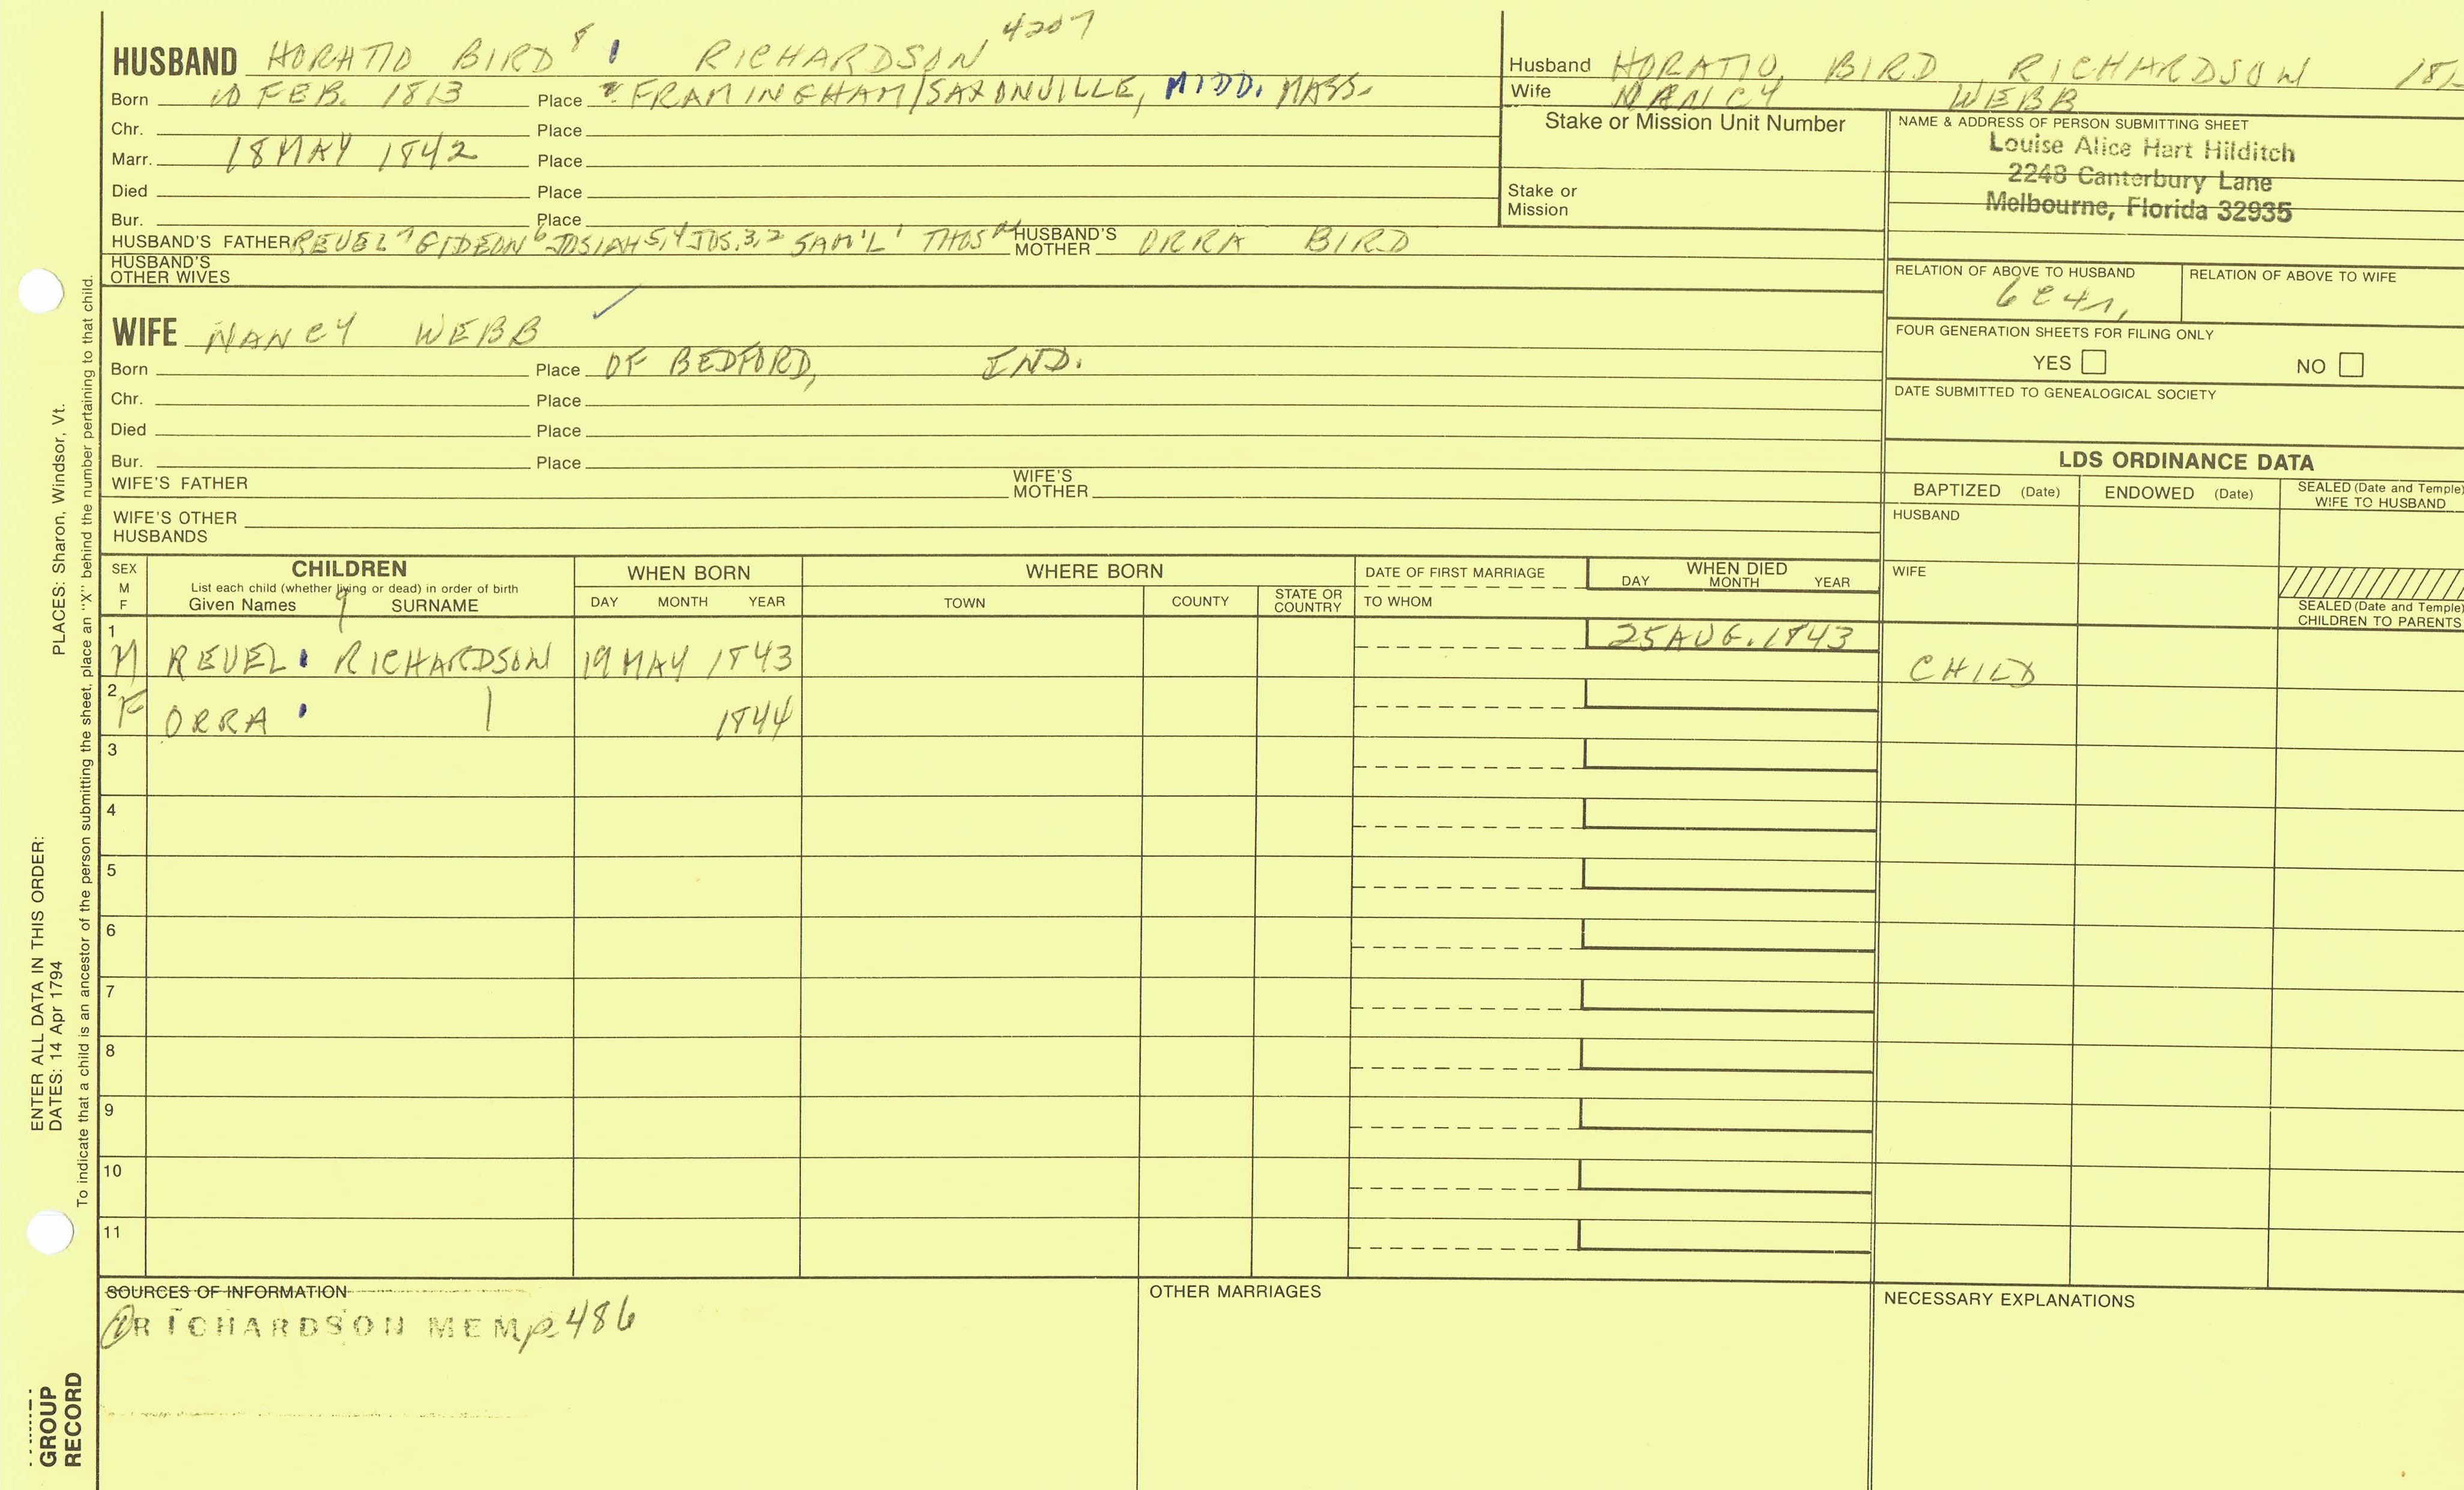 HUSBAND HORATIO BIRD 8 RICHARDSON 4207
Born 10 FEB. 1813 Place FRAMINGHAM/SAXONVILLE, MIDD. MASS.
Chr. Place
Marr. 18 MAY 1842 Place
Died Place
Bur. Place
HUSBAND'S FATHER REUEL 7 GIDEON 6 JOSIAH 5,4 JOS. 3,2 SAM'L 1 THOS HUSBAND'S MOTHER ORRA BIRD
HUSBAND'S OTHER WIVES
Husband HORATIO, BIRD, RICHARDSON
Wife NANCY WEBB
Stake or Mission Unit Number
Stake or Mission
NAME & ADDRESS OF PERSON SUBMITTING SHEET
Louise Alice Hart Hilditch
2248 Canterbury Lane
Melbourne, Florida 32935
RELATION OF ABOVE TO HUSBAND RELATION OF ABOVE TO WIFE
FOUR GENERATION SHEETS FOR FILING ONLY
YES NO
DATE SUBMITTED TO GENEALOGICAL SOCIETY
WIFE NANCY WEBB
Born Place OF BEDFORD, IND.
Chr. Place
Died Place
Bur. Place
WIFE'S FATHER WIFE'S MOTHER
WIFE'S OTHER HUSBANDS
LDS ORDINANCE DATA
BAPTIZED (Date) ENDOWED (Date) SEALED (Date and Temple) WIFE TO HUSBAND
HUSBAND
WIFE
SEALED (Date and Temple) CHILDREN TO PARENTS
SEX M F
CHILDREN
List each child (whether living or dead) in order of birth
Given Names 9 SURNAME
WHEN BORN
DAY MONTH YEAR
WHERE BORN
TOWN COUNTY STATE OR COUNTRY
DATE OF FIRST MARRIAGE
TO WHOM
WHEN DIED
DAY MONTH YEAR
1 M REUEL RICHARDSON 19 MAY 1843 25 AUG. 1843 CHILD
2 F ORRA 1844
3
4
5
6
7
8
9
10
11
SOURCES OF INFORMATION
① RICHARDSON MEM p 486
OTHER MARRIAGES
NECESSARY EXPLANATIONS
ENTER ALL DATA IN THIS ORDER:
DATES: 14 Apr 1794 PLACES: Sharon, Windsor, Vt.
To indicate that a child is an ancestor of the person submitting the sheet, place an "X" behind the number pertaining to that child.
GROUP
RECORD